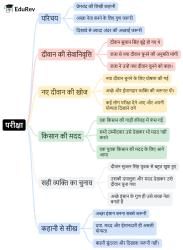 EduRev
परीक्षा
परिचय
प्रेमचंद की हिन्दी कहानी
अच्छा नेता बनने के लिए गुण जरूरी
दिखावे से ज्यादा अंदर की अच्छाई जरूरी
दीवान की सेवानिवृत्ति
दीवान सुजान सिंह बूढ़े हो गए थे
राजा से नया दीवान चुनने की अनुमति मांगी
राजा ने उन्हें नया दीवान चुनने को कहा
नए दीवान की खोज
नया दीवान चुनने के लिए घोषणा की गई
अच्छे और ईमानदार व्यक्ति की जरूरत थी
कई लोग परीक्षा देने आए और अपनी योग्यता दिखाने लगे
किसान की मदद
एक किसान की गाड़ी कीचड़ में फंस गई
सभी उम्मीदवार उसे देखकर भी मदद नहीं करते
एक युवक किसान की मदद के लिए आगे आया
सही व्यक्ति का चुनाव
दीवान सुजान सिंह युवक से बहुत खुश हुए
उसकी दयालुता और मदद देखकर उसे दीवान चुना गया
अच्छे इंसान के गुण ही उसे सच्चा नेता बनाते हैं
कहानी से सीख
अच्छा इंसान बनना सबसे जरूरी
दया, मदद और ईमानदारी ही असली योग्यता
बाहरी सुंदरता और दिखावा जरूरी नहीं